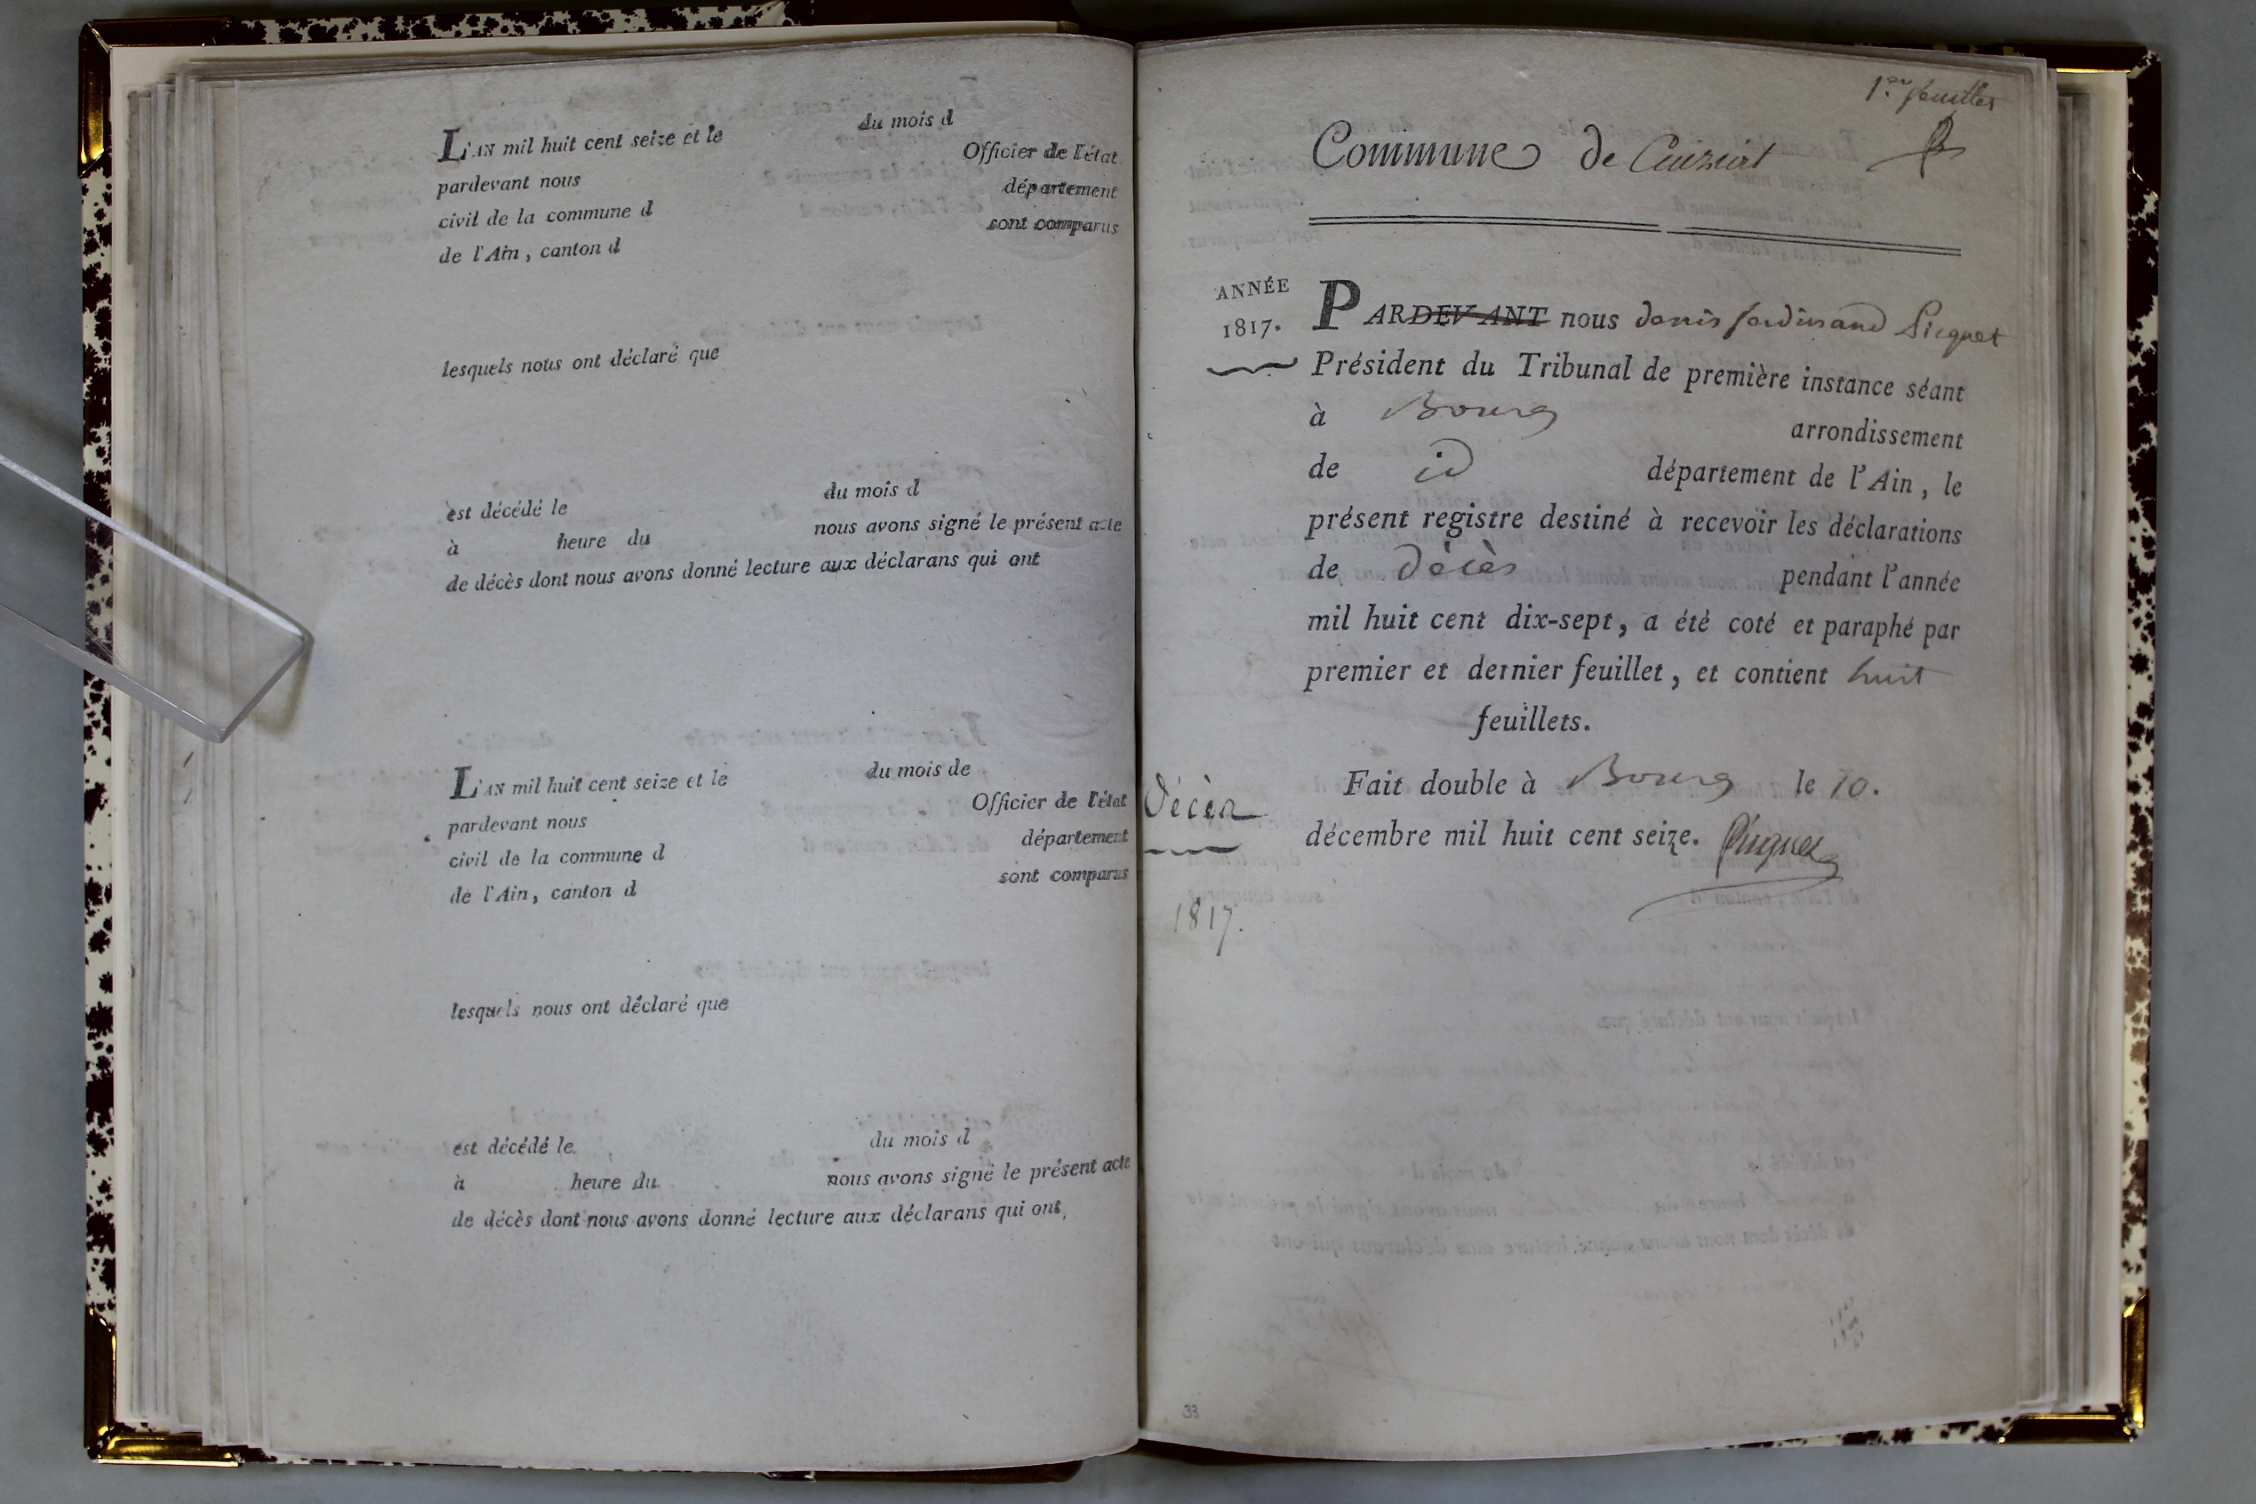 L'AN mil huit cent seize et le du mois d
pardevant nous Officier de l'état
civil de la commune d département
de l'Ain, canton d sont comparus
lesquels nous ont déclaré que
est décédé le du mois d
à heure du nous avons signé le présent acte
de décès dont nous avons donné lecture aux déclarans qui ont
L'AN mil huit cent seize et le du mois de
pardevant nous Officier de l'état
civil de la commune d département
de l'Ain, canton d sont comparus
lesquels nous ont déclaré que
est décédé le du mois d
à heure du nous avons signé le présent acte
de décès dont nous avons donné lecture aux déclarans qui ont,
1.er feuillet
Commune de Cuiziat
ANNÉE
1817.
PARDEVANT nous denis ferdinand Picquet
Président du Tribunal de première instance séant
à Bourg arrondissement
de id département de l'Ain, le
présent registre destiné à recevoir les déclarations
de décès pendant l'année
mil huit cent dix-sept, a été coté et paraphé par
premier et dernier feuillet, et contient huit
feuillets.
Fait double à Bourg le 10.
décembre mil huit cent seize. Picquet
Décès
1817.
33